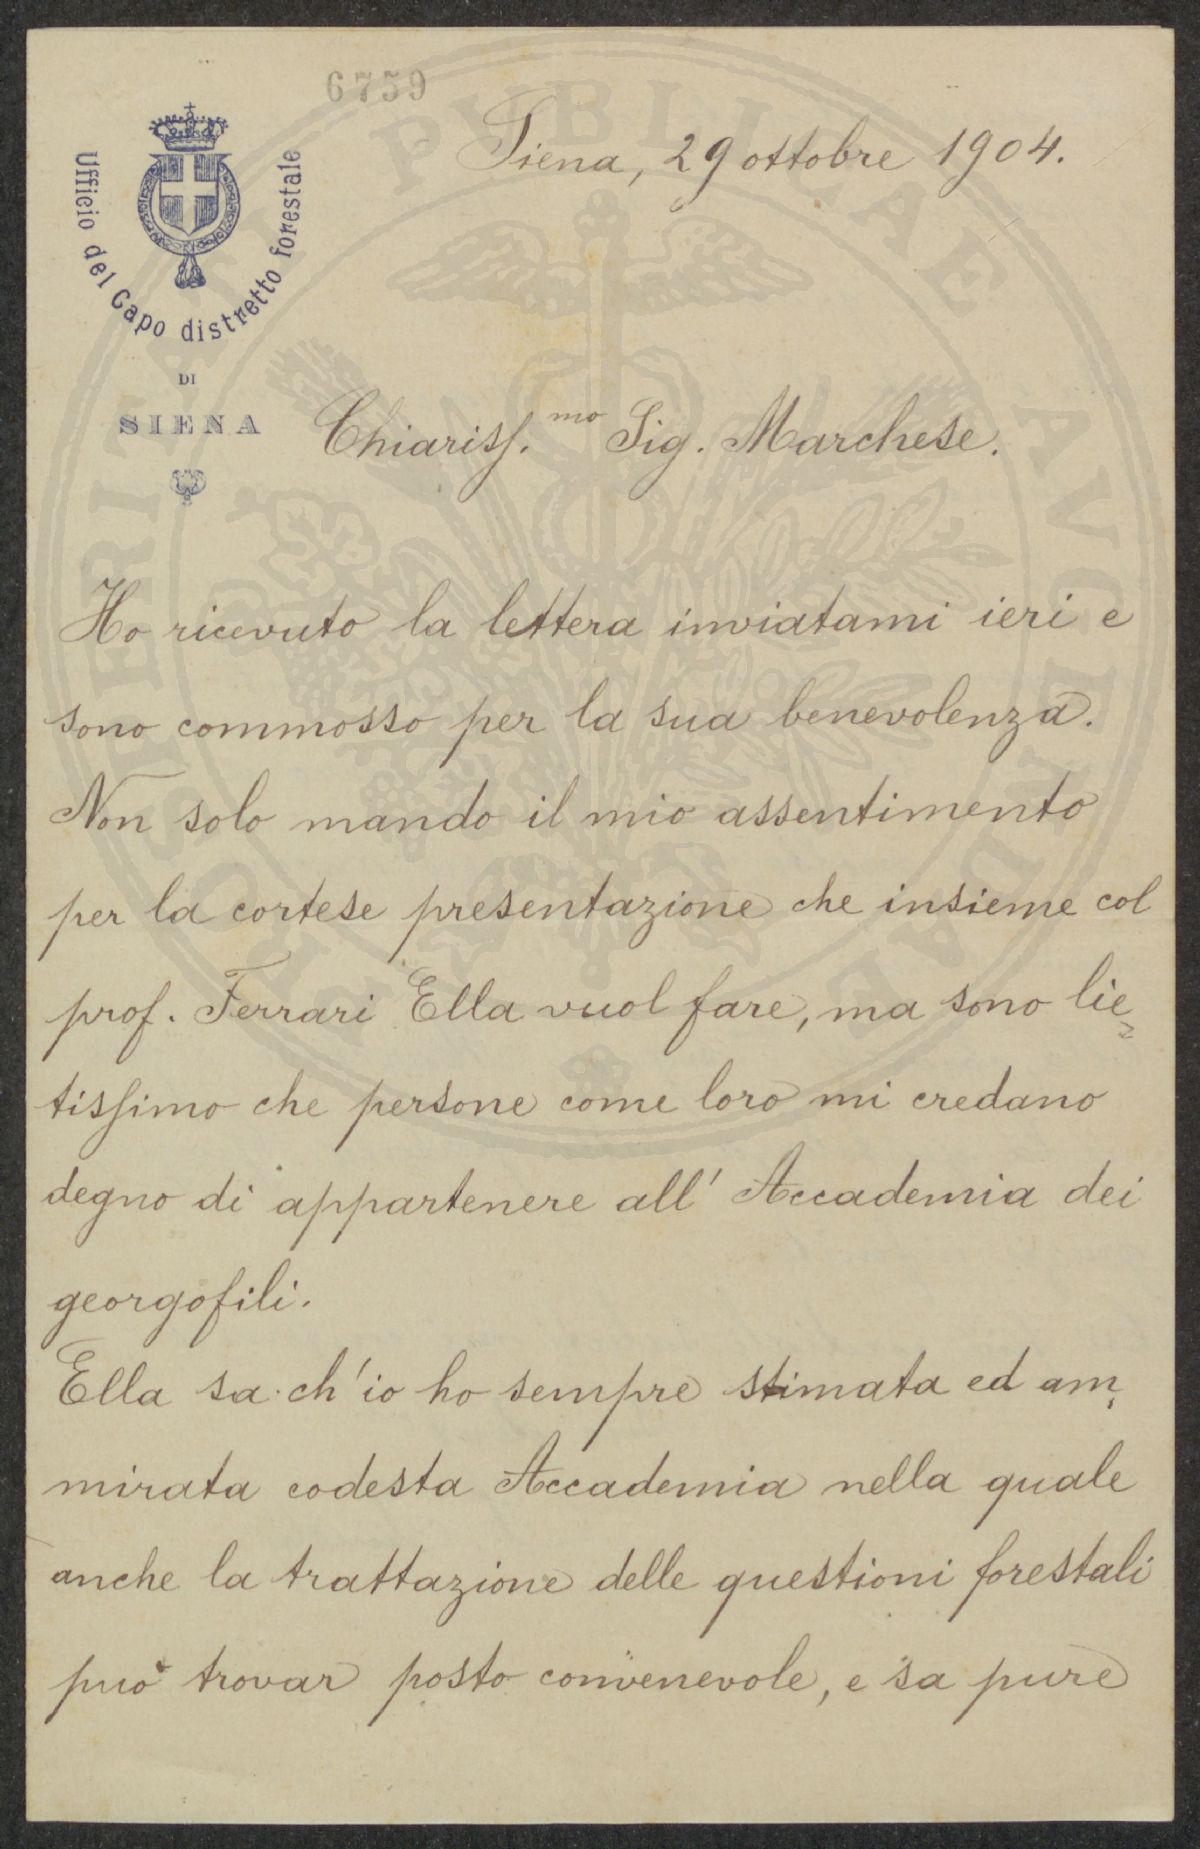 6759
Siena, 29 ottobre 1904.
Ufficio del Capo distretto forestale
DI
SIENA
Chiariss.mo Sig. Marchese.
Ho ricevuto la lettera inviatami ieri e
sono commosso per la sua benevolenza.
Non solo mando il mio assentimento
per la cortese presentazione che insieme col
prof. Ferrari Ella vuol fare, ma sono lie=
tissimo che persone come loro mi credano
degno di appartenere all' Accademia dei
georgofili.
Ella sa ch'io ho sempre stimata ed am=
mirata codesta Accademia nella quale
anche la trattazione delle questioni forestali
può trovar posto convenevole, e sa pure
PROSPERITATI PUBLICAE AUGENDAE